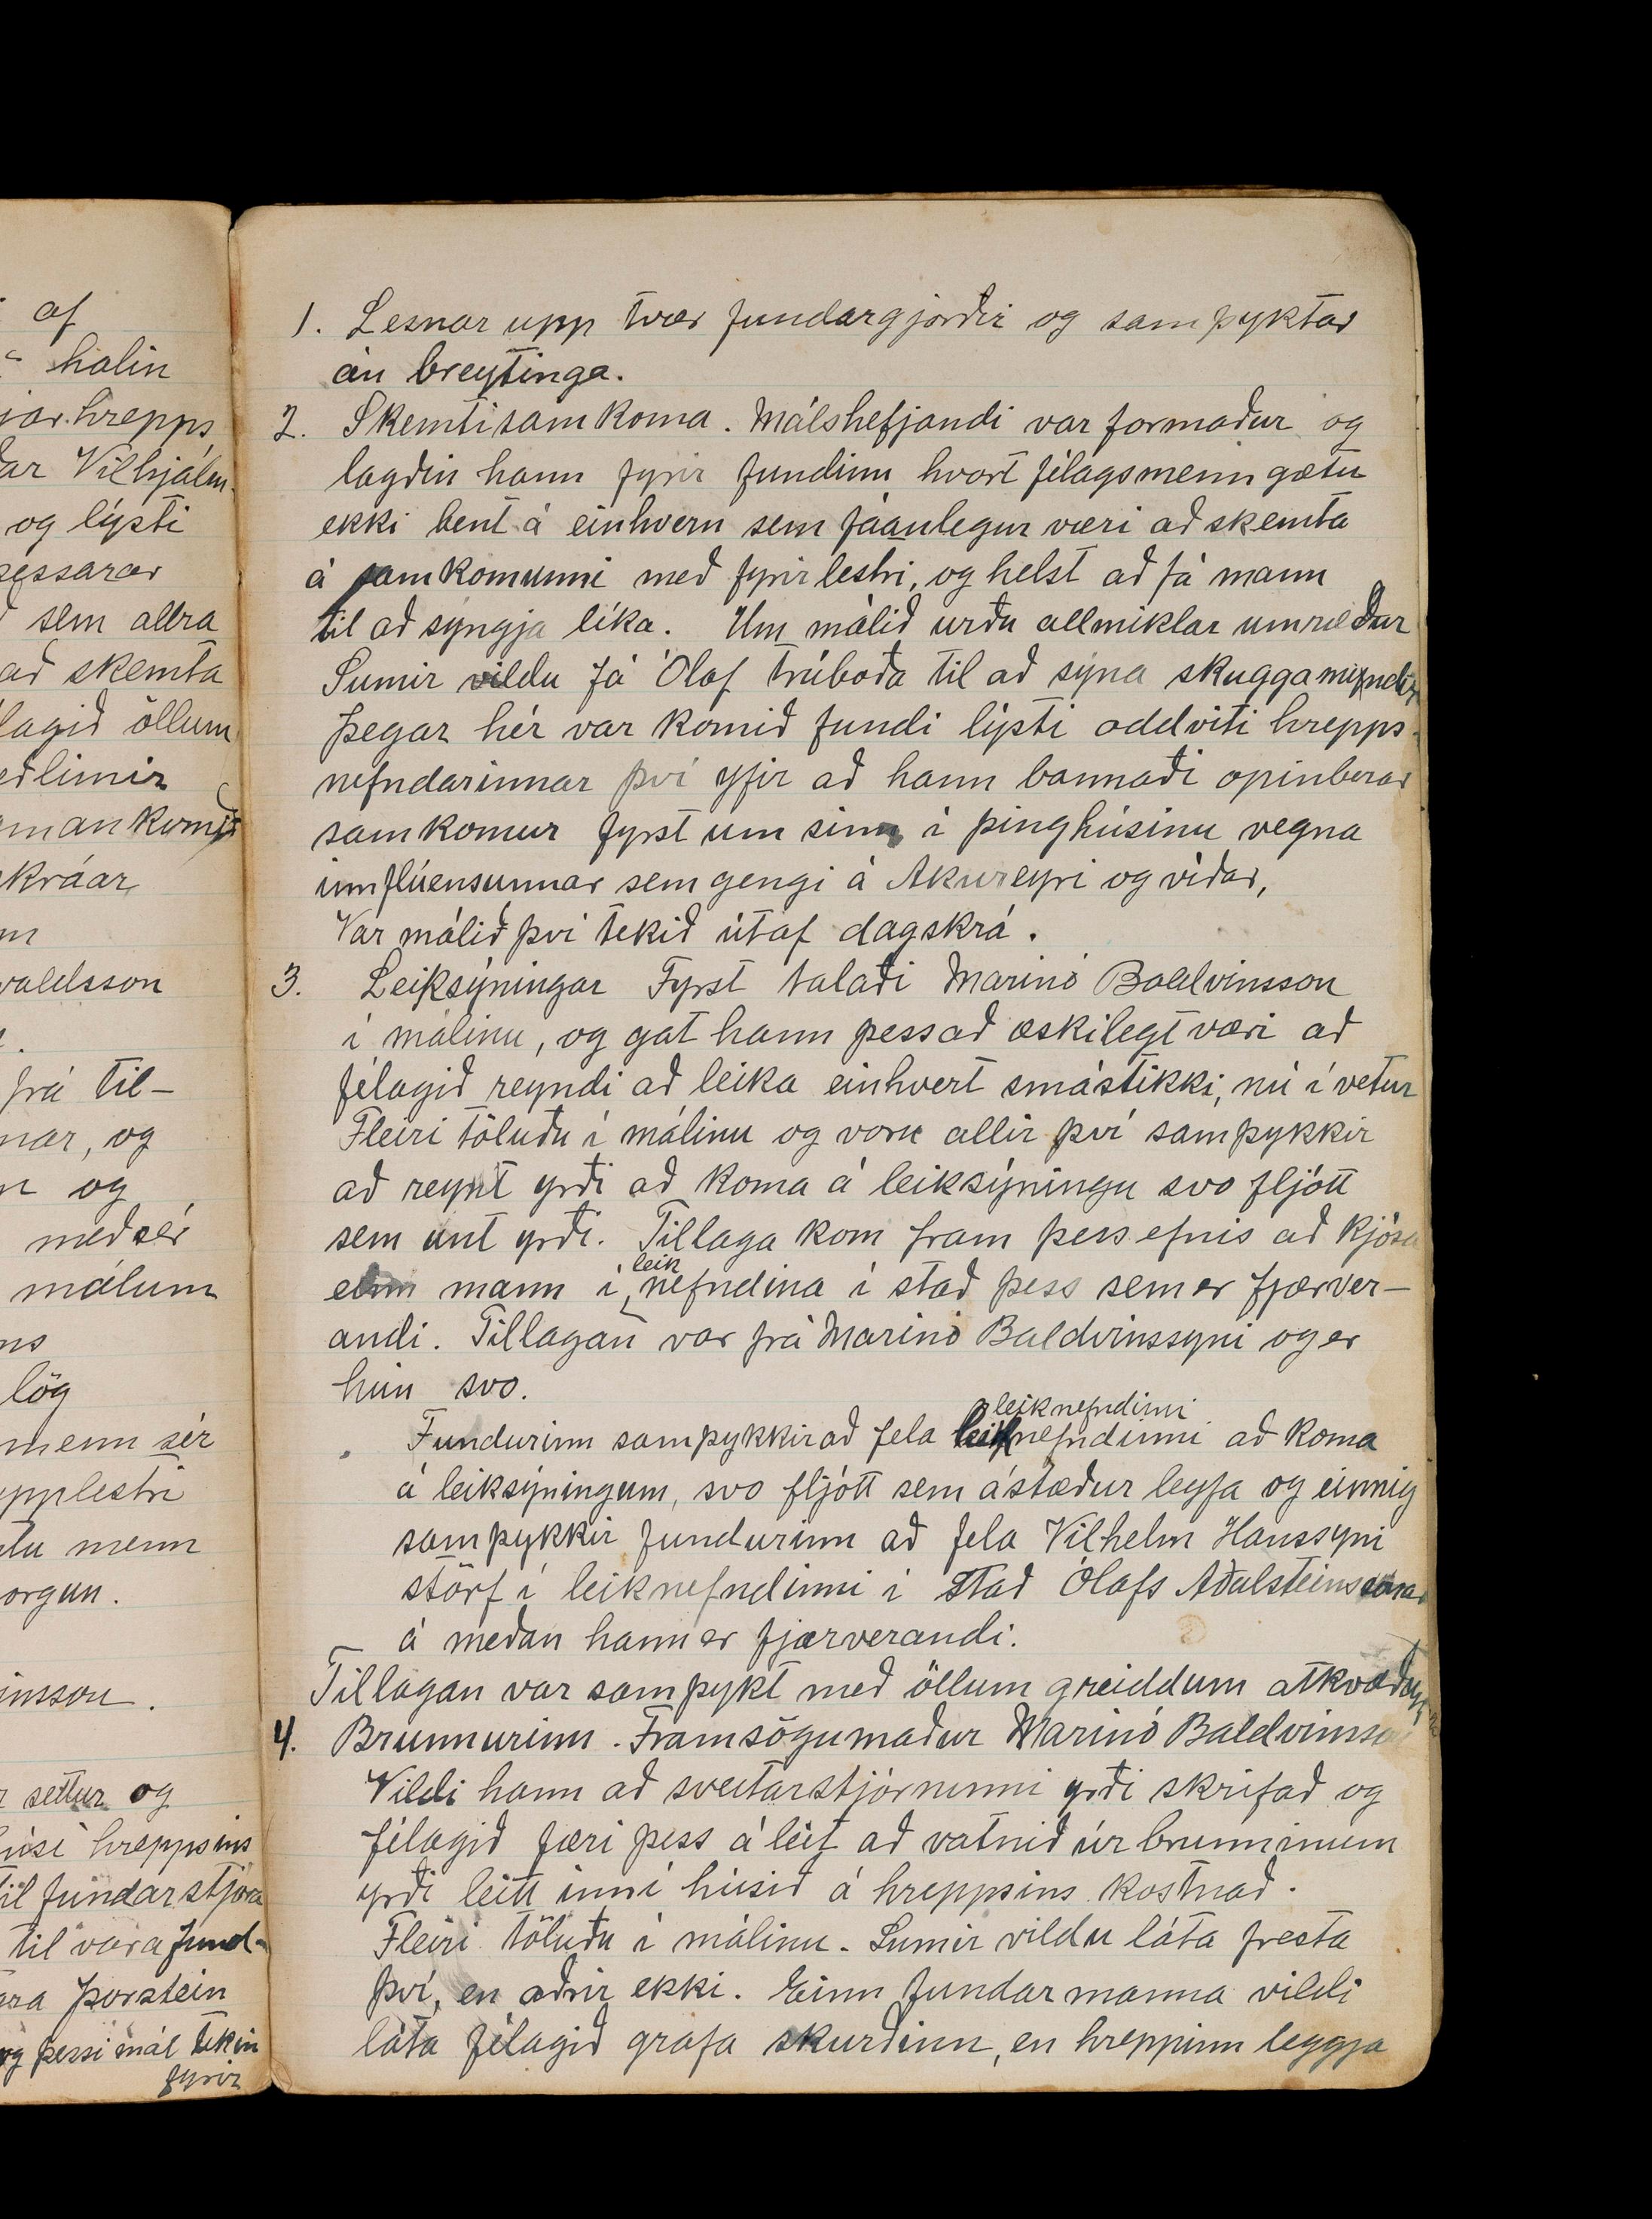 af
halin
hrepps
Vilhjálm-
og lýsti
þessarar
sem allra
að skemta
öllum
kráar,
valdsson
frá til-
og
og
með sér
málum
lög
menn sér
upplestri
menn
settur og
hreppsins
til fundarstjóra
til vara fund-
þorstein
og þessi mál tekin
fyrir
1. Lesnar upp tvær fundargjörðir og samþyktar
án breytinga.
2. Skemtisamkoma. Málshefjandi var formaður og
lagðin hann fyrir fundinn hvort félagsmenn gætu
ekki bent á einhvern sem fáanlegur væri að skemta
á samkomunni með fyrirlestri, og helst að fá mann
til að syngja líka. Um málið urðu allmiklar umræður
Sumir vildu fá Ólaf trúboða til að sýna skuggamyndir
Þegar hér var komið fundi lýsti oddviti hrepps-
nefndarinnar því yfir að hann bannaði opinberar
samkomur fyrst um sinn í þinghúsinu vegna
innflúensunnar sem gengi á Akureyri og víðar,
Var málið því tekið útaf dagskrá.
3. Leiksýningar Fyrst talaði Marinó Baldvinsson
í málinu, og gat hann þess að æskilegt væri að
félagið reyndi að leika einhvert smástikki, nú í vetur
Fleiri töluðu í málinu og voru allir því samþykkir
að reynt yrði að koma á leiksýningu svo fljótt
sem unt yrði. Tillaga kom fram þess efnis að kjósa
einn mann í leiknefndina í stað þess sem er fjærver-
andi. Tillagan var frá Marinó Baldvinssyni og er
hún svo.
leiknefndinni
Fundurinn samþykkir að fela leiknefndinni að koma
á leiksýningum, svo fljótt sem ástæður leyfa og einnig
samþykkir fundurinn að fela Vilhelm Hanssyni
störf í leiknefndinni í stað Ólafs Aðalsteinssonar
á meðan hann er fjærverandi.
Tillagan var samþykt með öllum greiddum atkvæðum
4. Brunnurinn. Framsögumaður Marinó Baldvinsson
Vildi hann að sveitarstjórninni yrði skrifað og
félagið færi þess á leit að vatnið úr brunninum
yrði leitt inní húsið á hreppsins kostnað.
Fleiri töluðu í málinu. Sumir vildu láta fresta
því, en aðrir ekki. Einn fundarmanna vildi
láta félagið grafa skurðinn, en hreppinn leggja